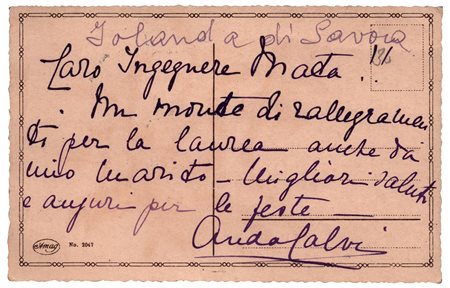 Iolanda di Savoia
136
Caro Ingegnere Mata!
Un monte di rallegramen
ti per la laurea anche da
mio marito – Migliori saluti
e auguri per le feste –
Anda Calvi
Amag No. 2047